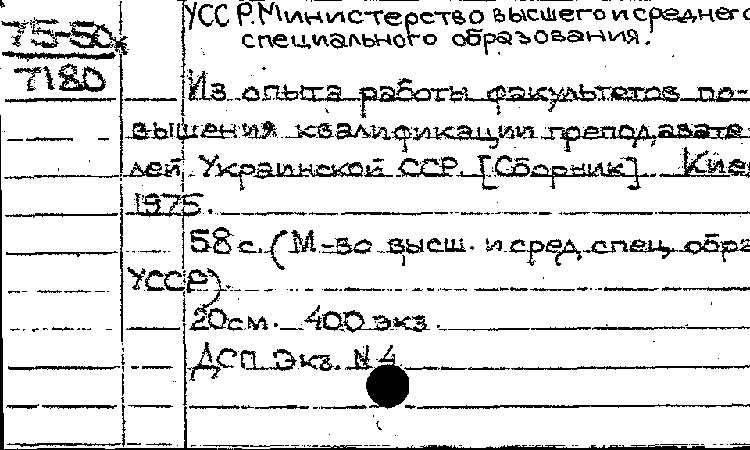 75-50к
7180
УССР. Министерство высшего и среднего
специального образования.
Из опыта работы факультетов по-
вышения квалификации преподавате
лей Украинской ССР. [Сборник] Кие
1975.
58 с. (М-во высш. и сред. спец. обра
УССР).
20см. 400 экз.
ДСП. Экз. N 4